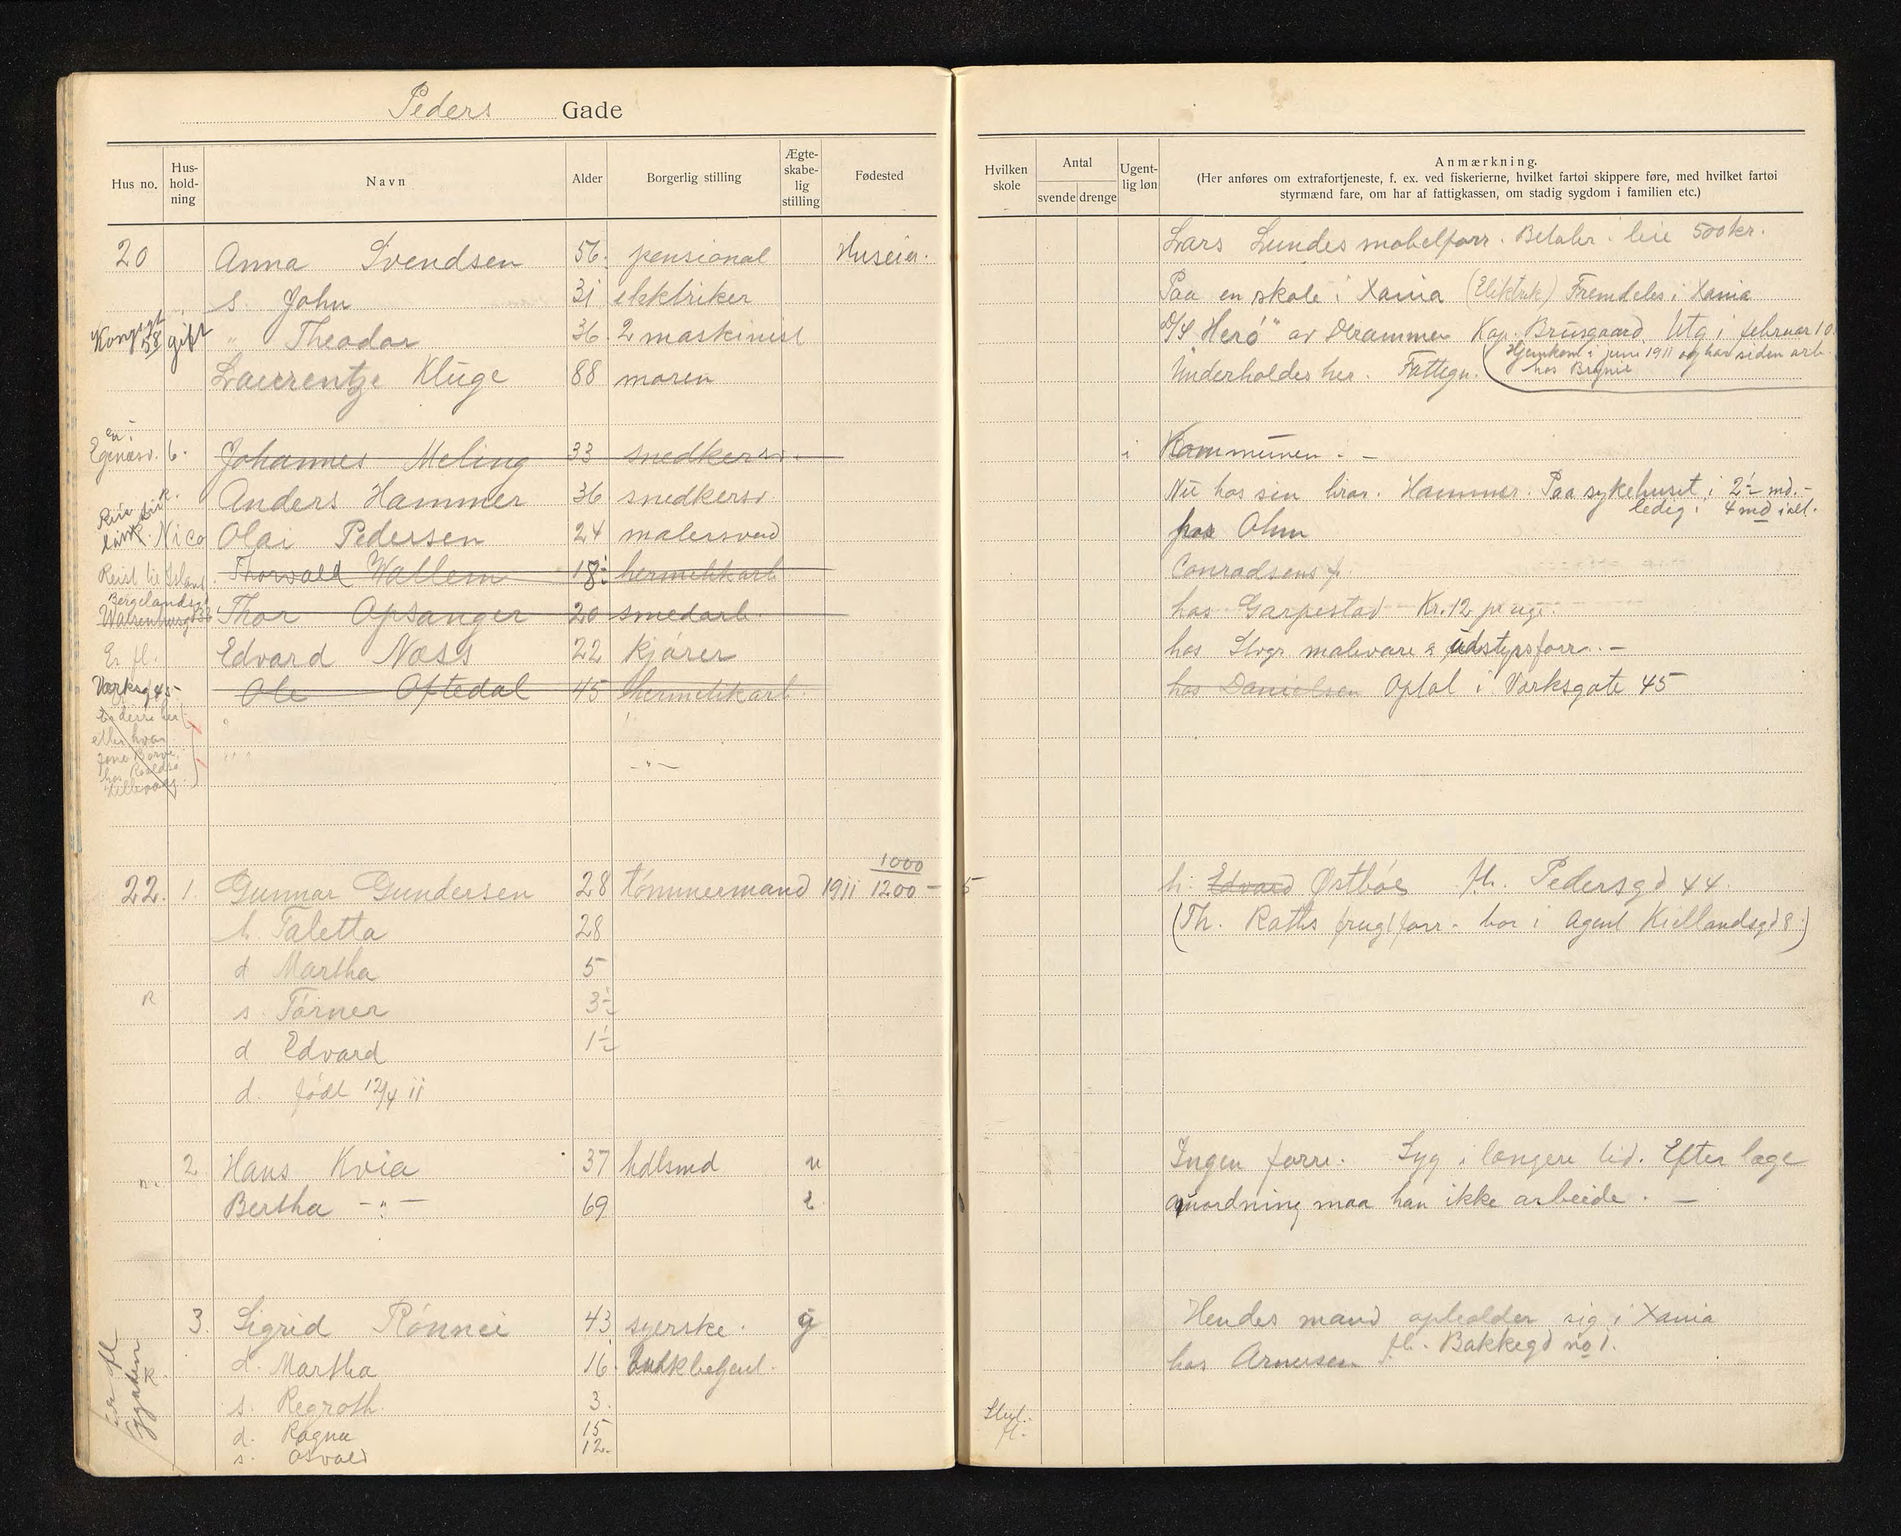 Peders Gade
Hus no. Hus-hold-ning Navn Alder Borgerlig stilling Ægte-skabe-lig stilling Fødested
20 Anna Svendsen 56. pensional Huseier.
s. John 31 elektriker
Kongsgt 58 gift " Theodor 36. 2 maskinist
Laurentze Kluge 88 moren
Egenæsv. 6. Johannes Meling 33 snedkersv.
Anders Hammer 36 snedkersv
Nico Olai Pedersen 24 malersvend
Reist til Island. Thorvald Wallem 18½ hermetikkarb
Bergelandsg
Thor Opsanger 20 smedarb.
Er fl. Edvard Næss 22 kjører
Værksg 45- Ole Oftedal 45 hermetikkarb
"
" " "
- " -
1000
22. 1. Gunnar Gundersen 28 tømmermand 1911 1200 -
h Taletta 28
d Martha 5
R s. Tørner 3½
d Edvard 1½
d. født 12/4 11
2 Hans Kvia 37 hdlsmd u
n. Bertha - " - 69 e
3. Sigrid Rønnei 43 syerske. g
R. d. Martha 16. butikbetjent.
s. Regroth. 3.
d. Ragna 15
s. Osvald 12.
Hvilken skole Antal svende drenge Ugent-lig løn Anmærkning.
(Her anføres om extrafortjeneste, f. ex. ved fiskerierne, hvilket fartøi skippere føre, med hvilket fartøi
styrmænd fare, om har af fattigkassen, om stadig sygdom i familien etc.)
Lars Lundes møbelforr. Betaler i leie 500 kr.
Paa en skole i Xania (Elektrik) Fremdeles i Xania
D/S "Herø" av Drammen Kap. Brusgaard. Utg i februar 10.
(Hjemkom i juni 1911 og har siden arb.
Underholdes her. Fattegn. hos Brynie
i Kommunen. -
Nu hos sin bror. Hammer. Paa sykehuset i 2½ md. -
ledig i 4 md ialt.
hos Ohm
Conradsens f.
hos Garpestad Kr. 12 pr uge.
hos Stvgr malevare & udstyrsforr. -
hos Danielsen Optat i Værksgate 45
5 h. Edvard Østbøe fh. Pedersgd 44.
(Th. Roths frugtforr. bor i Agent Kiellandsgd 8.)
Ingen forre. Syg i længere tid. Efter læge
anordning maa han ikke arbeide. -
Hendes mand opholder sig i Xania
hos Arnesen fl. Bakkegd no 1.
fl.